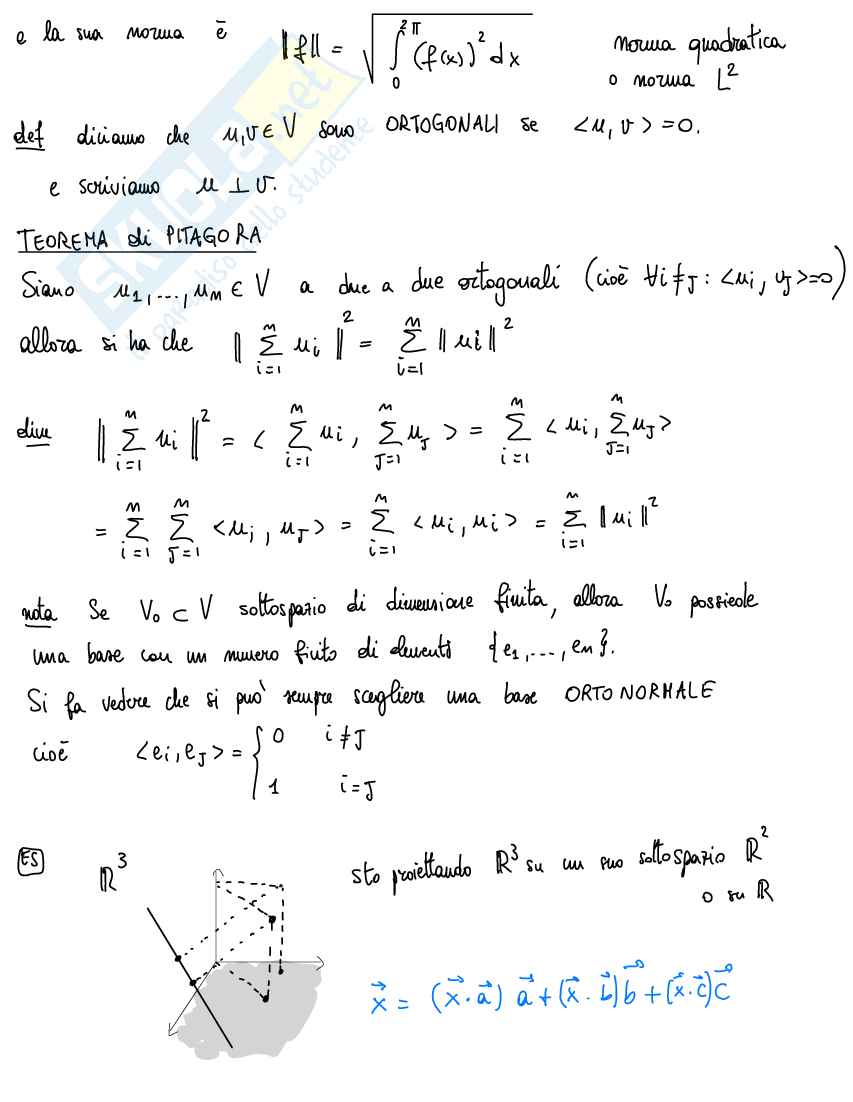 e la sua norma è ‖f‖ = √(∫₀^2π (f(x))² dx) norma quadratica
o norma L²
def diciamo che u,v ∈ V sono ORTOGONALI se <u, v> = 0.
e scriviamo u ⊥ v.
TEOREMA di PITAGORA
Siano u₁, ..., uₙ ∈ V a due a due ortogonali (cioè ∀i≠J : <ui, vJ>=0)
allora si ha che ‖ Σ_{i=1}^n ui ‖² = Σ_{i=1}^n ‖ui‖²
dim ‖ Σ_{i=1}^n ui ‖² = < Σ_{i=1}^n ui, Σ_{J=1}^n uJ > = Σ_{i=1}^n <ui, Σ_{J=1}^n uJ>
= Σ_{i=1}^n Σ_{J=1}^n <ui, uJ> = Σ_{i=1}^n <ui, ui> = Σ_{i=1}^n ‖ui‖²
nota Se V₀ ⊂ V sottospazio di dimensione finita, allora V₀ possiede
una base con un numero finito di elementi {e₁, ..., eₙ}.
Si fa vedere che si può sempre scegliere una base ORTONORMALE
cioè <ei, eJ> = { 0 i≠J
1 i=J
ES ℝ³ sto proiettando ℝ³ su un suo sottospazio ℝ²
o su ℝ
x⃗ = (x⃗·a⃗) a⃗ + (x⃗·b⃗) b⃗ + (x⃗·c⃗) c⃗
SKUOLA.net
il paradiso dello studente